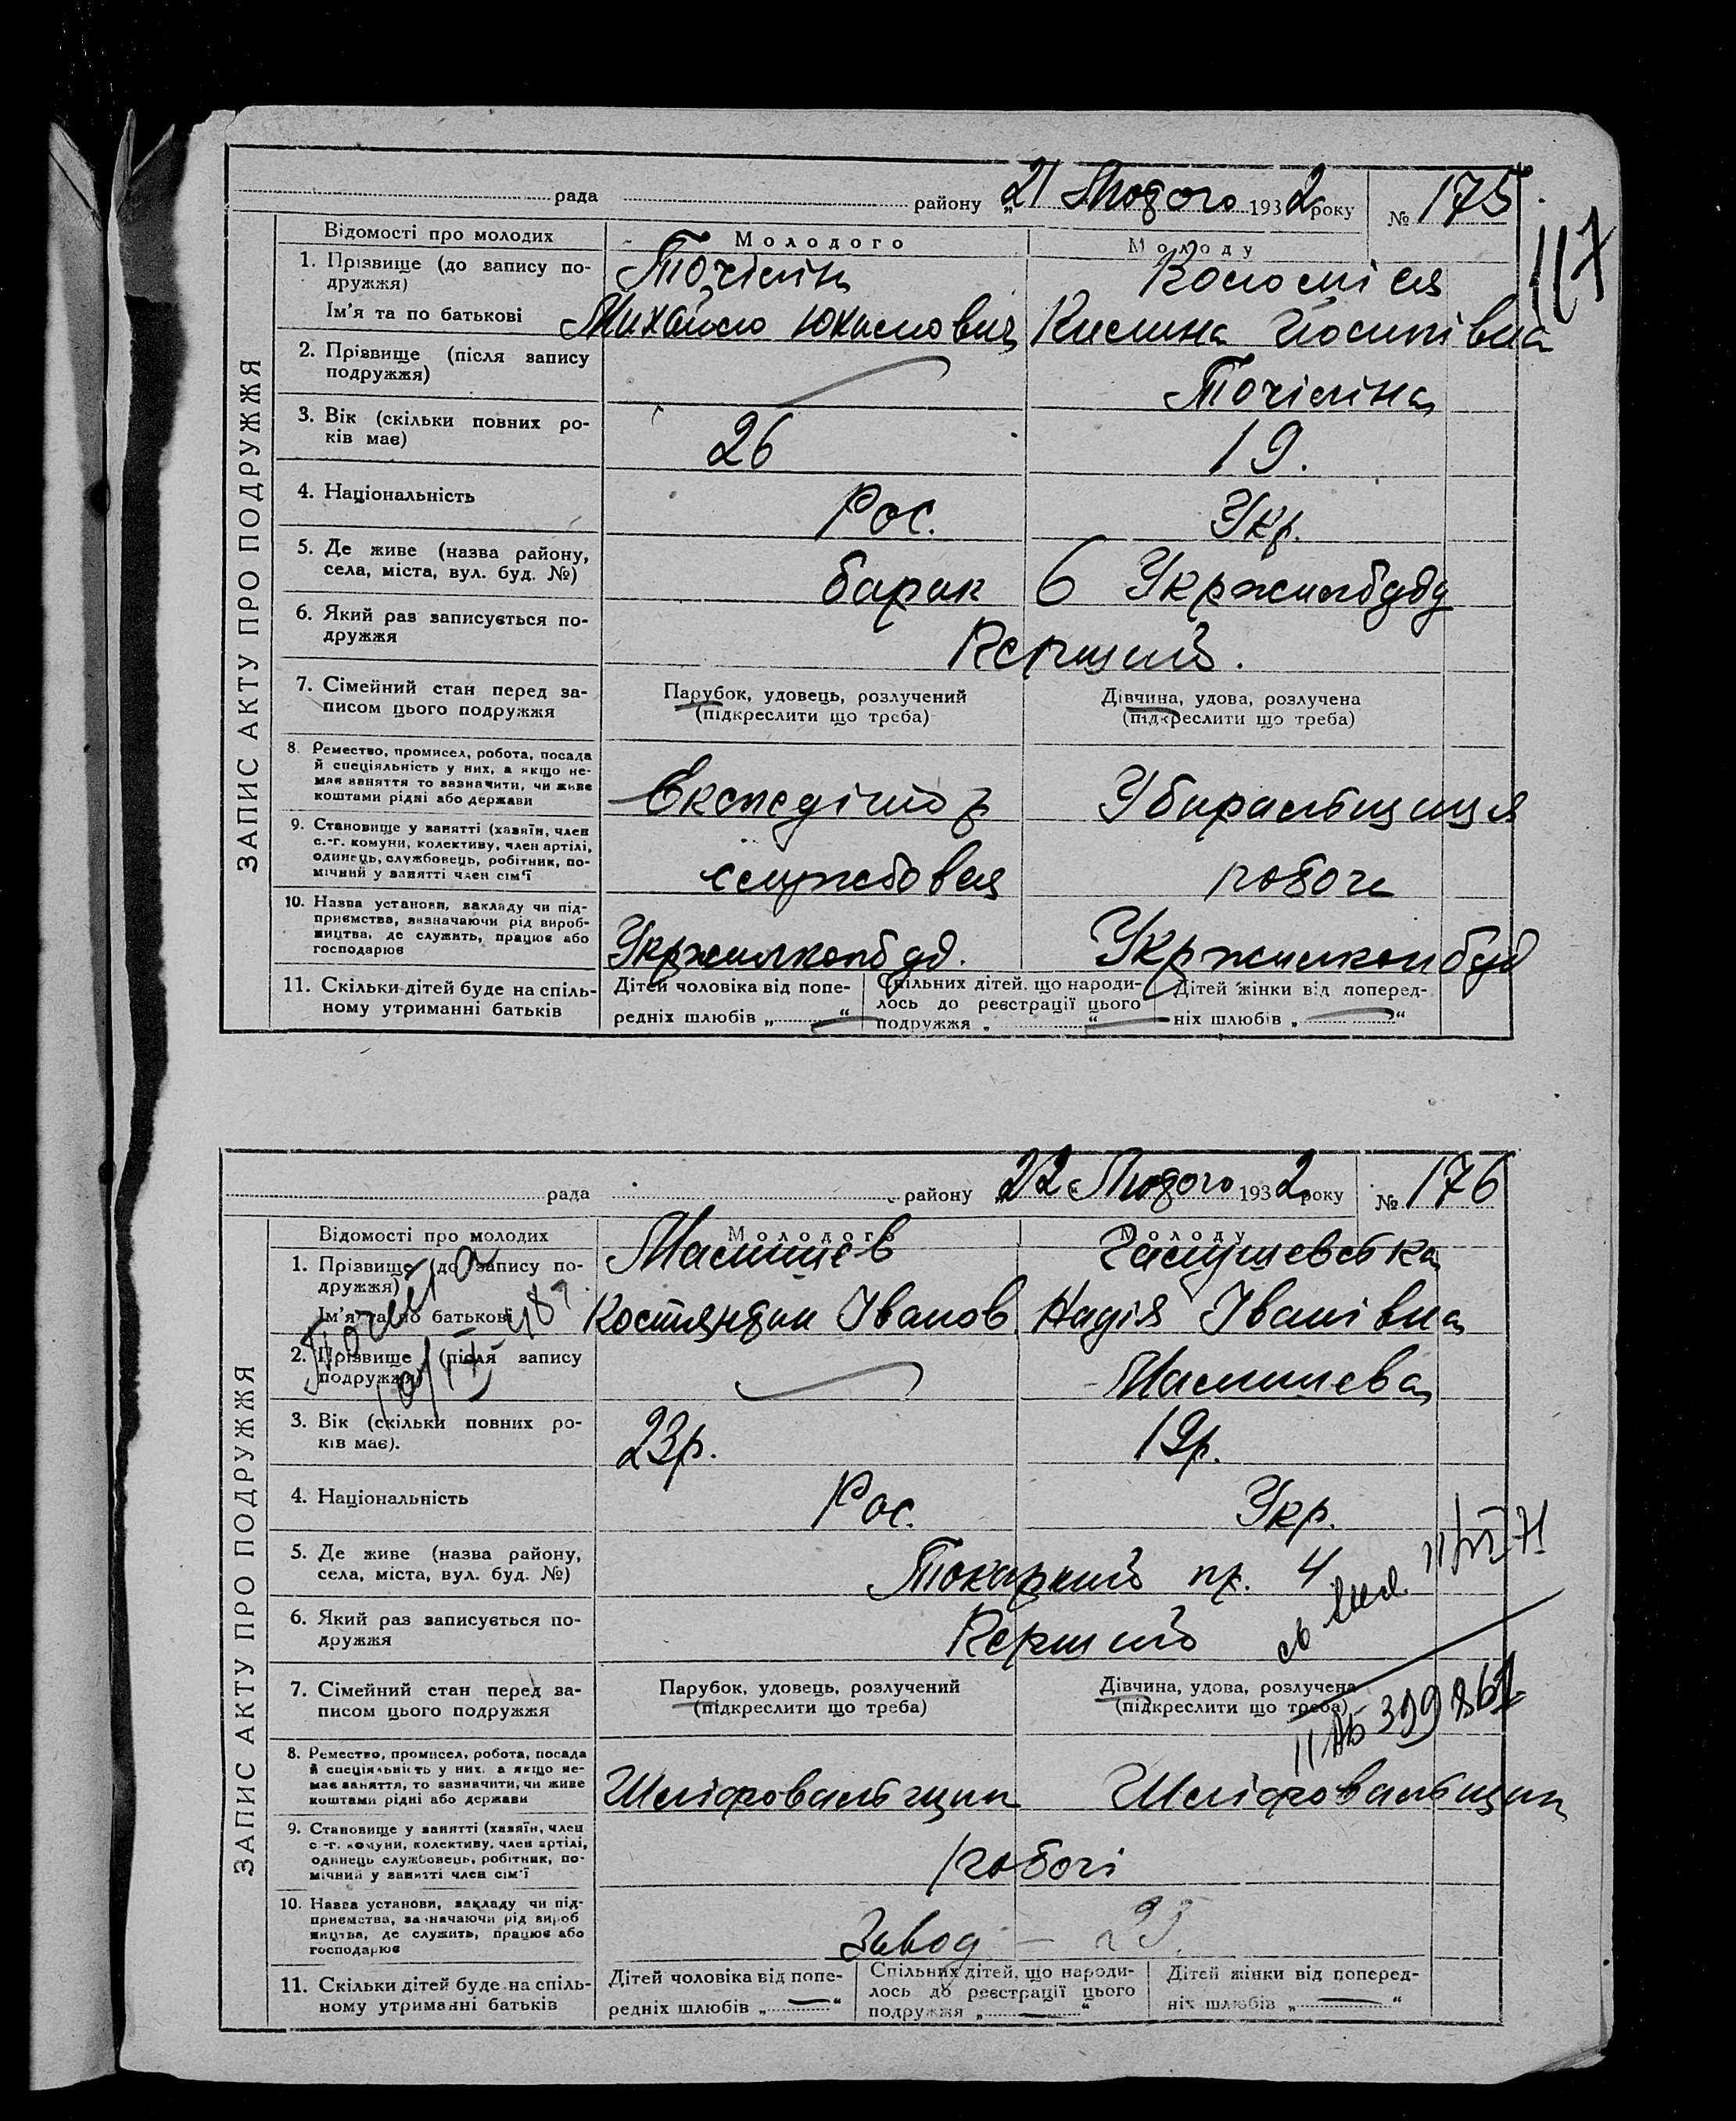 рада району „21 Лютого 1932 року № 175
117
ЗАПИС АКТУ ПРО ПОДРУЖЖЯ
Відомості про молодих Молодого Молоду
1. Прізвище (до запису по-
дружжя) Точілін Коломієя
Ім'я та по батькові Михайло Юхимович Килина Йосипівна
2. Прізвище (після запису
подружжя) Точіліна
3. Вік (скільки повних ро-
ків має) 26 19.
4. Національність Рос. Укр.
5. Де живе (назва району,
села, міста, вул. буд. №) барак 6 Укржилбуду
6. Який раз записується по-
дружжя Перший.
7. Сімейний стан перед за-
писом цього подружжя
Парубок, удовець, розлучений
(підкреслити що треба)
Дівчина, удова, розлучена
(підкреслити що треба)
8. Ремество, промисел, робота, посада
й спеціяльність у них, а якщо не-
має заняття то зазначити, чи живе
коштами рідні або держави
Експедітор Убиральщиця
9. Становище у занятті (хазяїн, член
с.-г. комуни, колективу, член артілі,
одинець, службовець, робітник, по-
мічний у занятті член сім'ї
службовея робоч
10. Назва установи, закладу чи під-
приємства, визначаючи рід вироб-
ництва, де служить, працює або
господарює
Укржилкопбуд. Укржилкопбуд
11. Скільки дітей буде на спіль-
ному утриманні батьків
Дітей чоловіка від попе-
редніх шлюбів „ “
Спільних дітей, що народи-
лось до реєстрації цього
подружжя „ “
Дітей жінки від поперед-
ніх шлюбів „ “
рада району „22“ Лютого 1932 року № 176
ЗАПИС АКТУ ПРО ПОДРУЖЖЯ
Відомості про молодих Молодого Молоду
1. Прізвище (до запису по-
дружжя) Малишев
Ім'я та по батькові Костянтин Іванов. Надія Іванівна
2. Прізвище (після запису
подружжя) Малишева
3. Вік (скільки повних ро-
ків має). 23р. 19р.
4. Національність Рос. Укр.
5. Де живе (назва району,
села, міста, вул. буд. №) Токарний пр. 4
6. Який раз записується по-
дружжя Перший
7. Сімейний стан перед за-
писом цього подружжя
Парубок, удовець, розлучений
(підкреслити що треба)
Дівчина, удова, розлучена
(підкреслити що треба)
8. Ремество, промисел, робота, посада
й спеціяльність у них. а якщо не-
має заняття, то зазначити, чи живе
коштами рідні або держави
Шліфовальщик Шліфовальщик
9. Становище у занятті (хазяїн, член
с.-г. комуни, колективу, член артілі,
одинець службовець, робітник, по-
мічний у занятті член сім'ї
робочі
10. Назва установи, закладу чи під-
приємства, зазначаючи рід вироб
ництва, де служить, працює або
господарює
Завод –
11. Скільки дітей буде на спіль-
ному утриманні батьків
Дітей чоловіка від попе-
редніх шлюбів „ “
Спільних дітей, що народи-
лось до реєстрації цього
подружжя „ “
Дітей жінки від поперед-
ніх шлюбів „ “